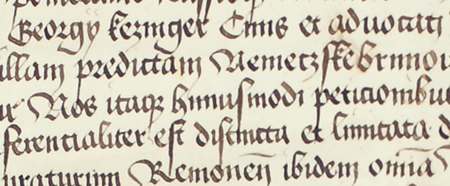 Georgy kezinger Ciuis et aduocati
illam predictam Nemetzskebrnnow
Nos itaqꝫ huiusmodi peticionibus
ferentialiter est distincta et limitata d
Remoneñ ibidem om̄ia